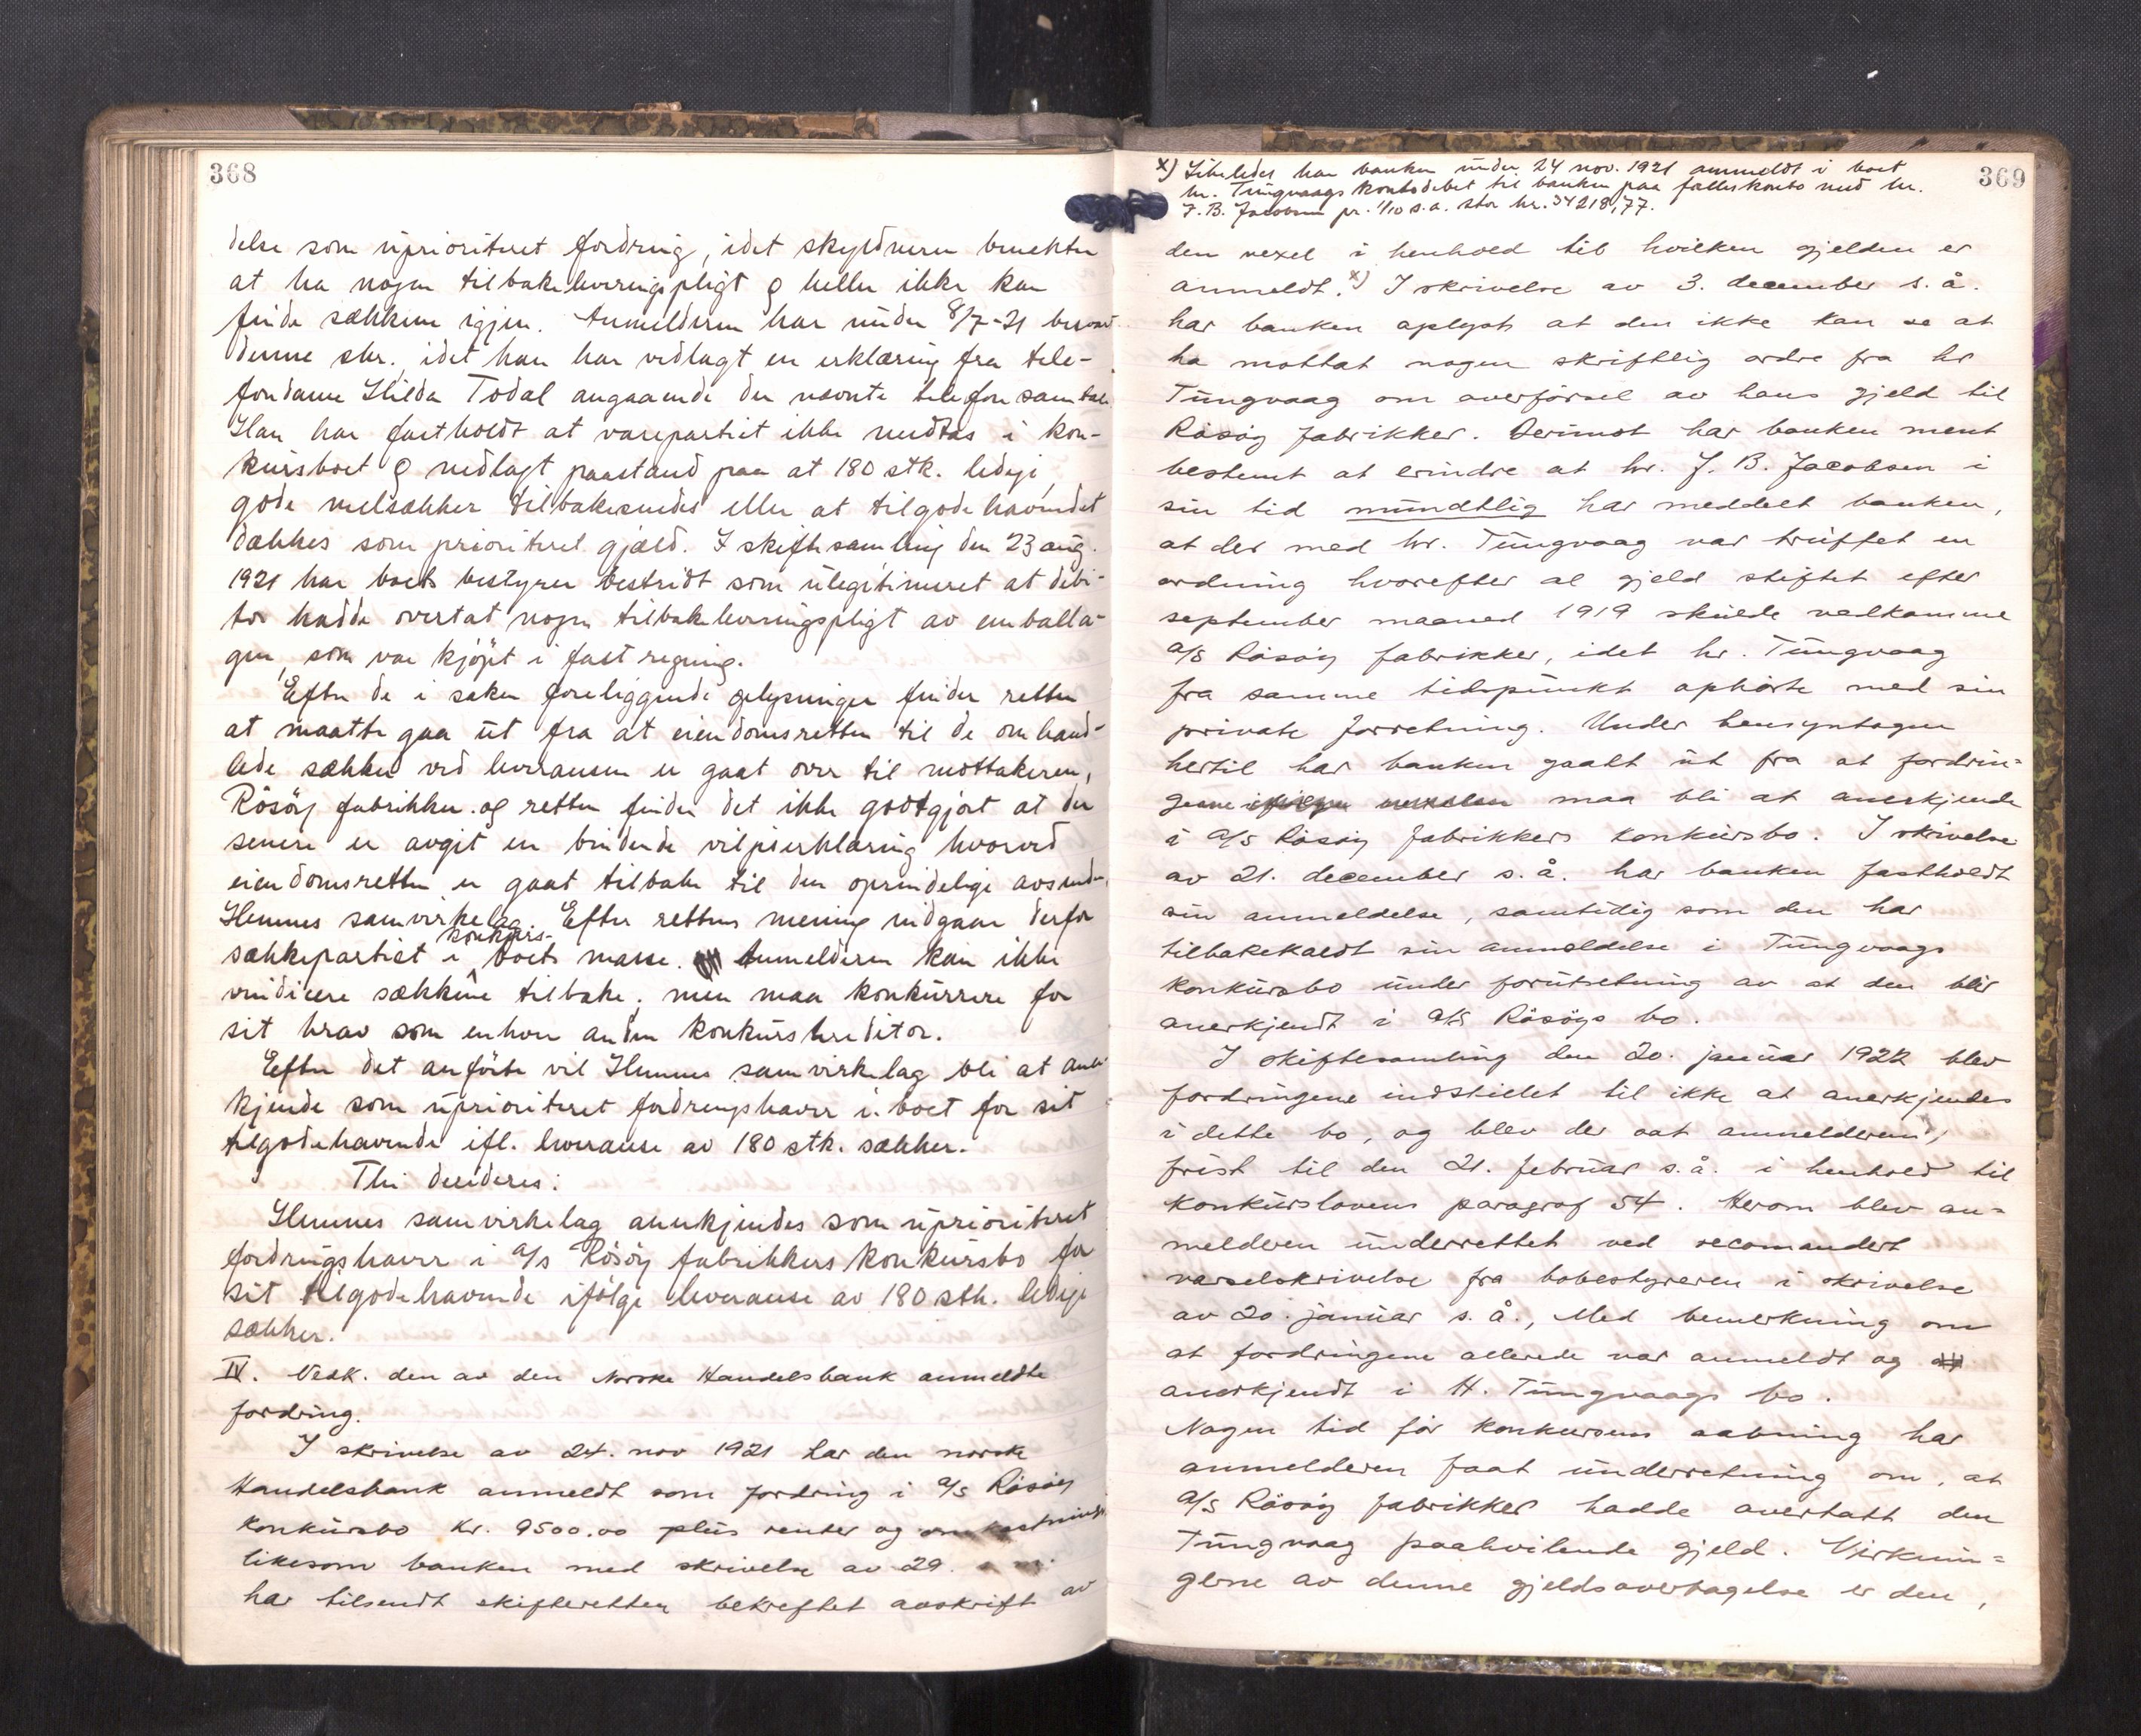 368
delse som uprioriteret fordring, idet skyldneren benekter
at ha nogen tilbakeleveringspligt & heller ikke kan
finde sækkene igjen. Anmelderen har under 8/7-21 besvart
denne skr., idet han har vedlagt en erklæring fra tele-
fondame Hilda Todal angaaende den nævnte telefonsamtale.
Han har fastholdt at varepartiet ikke medtas i kon-
kursboet & nedlagt paastand paa at 180 stk. ledige,
gode melsækker tilbakesendes eller at tilgodehavendet
dækkes som prioriteret gjæld. I skiftesamling den 23 aug.
1921 har boets bestyrer bestridt som ulegitimeret at debi-
tor hadde overtat nogen tilbakeleveringspligt av emballa-
gen, som var kjöpt i fast regning.
Efter de i saken foreliggende oplysninger finder retten
at maatte gaa ut fra at eiendomsretten til de omhand-
lede sækker ved leveransen er gaat over til mottakeren,
Rösöy fabrikker. og retten finder det ikke godtgjort at der
senere er avgit en bindende viljeserklæring hvorved
eiendomsretten er gaat tilbake til den oprindelige avsender
Hemnes samvirkelag. Efter rettens mening indgaar derfor
konkurs-
sækkepartiet i boets masse. Anmelderen kan ikke
vindicere sækkene tilbake, men maa konkurrere for
sit krav som enhver anden konkurskreditor.
Efter det anförte vil Hemnes samvirkelag bli at aner-
kjende som uprioriteret fordringshaver i boet for sit
tilgodehavende ifl. leveranse av 180 stk. sækker.
Thi decideres:
Hemnes samvirkelag anerkjendes som uprioriteret
fordringshaver i A/S Rösöy fabrikkers konkursbo for
sit tilgodehavende ifölge leveranse av 180 stk. ledige
sækker.
IV. Vedk. den av den Norske Handelsbank anmeldte
fordring.
I skrivelse av 24. nov 1921 har den norske
Handelsbank anmeldt som fordring i A/S Rösöy
konkursbo Kr. 9500.00 plus renter og omkostninger
likesom banken med skrivelse av 29.
har tilsendt skifteretten bekreftet avskrift av
369
x) Likeledes har banken under 24 nov. 1921 anmeldt i boet
hr. Tungvaags kontodebet til banken paa felleskonto med hr.
J. B. Jacobsen pr. 1/10 s.a. stor kr. 34218,77.
den vexel i henhold til hvilken gjelden er
anmeldt. x) I skrivelse av 3. december s. å.
har banken oplyst at den ikke kan se at
ha mottat nogen skriftlig ordre fra hr
Tungvaag om overförsel av hans gjeld til
Rösöy fabrikker. Derimot har banken ment
bestemt at erindre at hr. J. B. Jacobsen i
sin tid mundtlig har meddelt banken,
at der med hr. Tungvaag var truffet en
ordning hvorefter al gjeld stiftet efter
september maaned 1919 skulde vedkomme
A/S Rösöy fabrikker, idet hr. Tungvaag
fra samme tidspunkt ophörte med sin
private forretning. Under hensyntagen
hertil har banken gaatt ut fra at fordrin-
gerne maa bli at anerkjende
i A/S Rösöy fabrikkers konkursbo. I skrivelse
av 21. december s. å. har banken fastholdt
sin anmeldelse, samtidig som den har
tilbakekaldt sin anmeldelse i Tungvaags
konkursbo under forutsetning av at den blir
anerkjendt i A/S Rösöys bo.
I skiftesamling den 20. januar 1922 blev
fordringene indstillet til ikke at anerkjendes
i dette bo, og blev der sat anmelderen
frist til den 21. februar s. å. i henhold til
konkurslovens paragraf 54. Herom blev an-
melderen underrettet ved recomandert
varselskrivelse fra bobestyreren i skrivelse
av 20. januar s. å., Med bemerkning om
at fordringene allerede var anmeldt og
anerkjendt i H. Tungvaags bo.
Nogen tid för konkursens aabning har
anmelderen faat underretning om, at
A/S Rösöy fabrikker hadde overtatt den
Tungvaag paahvilende gjeld. Virknin-
gerne av denne gjeldsovertagelse er den,